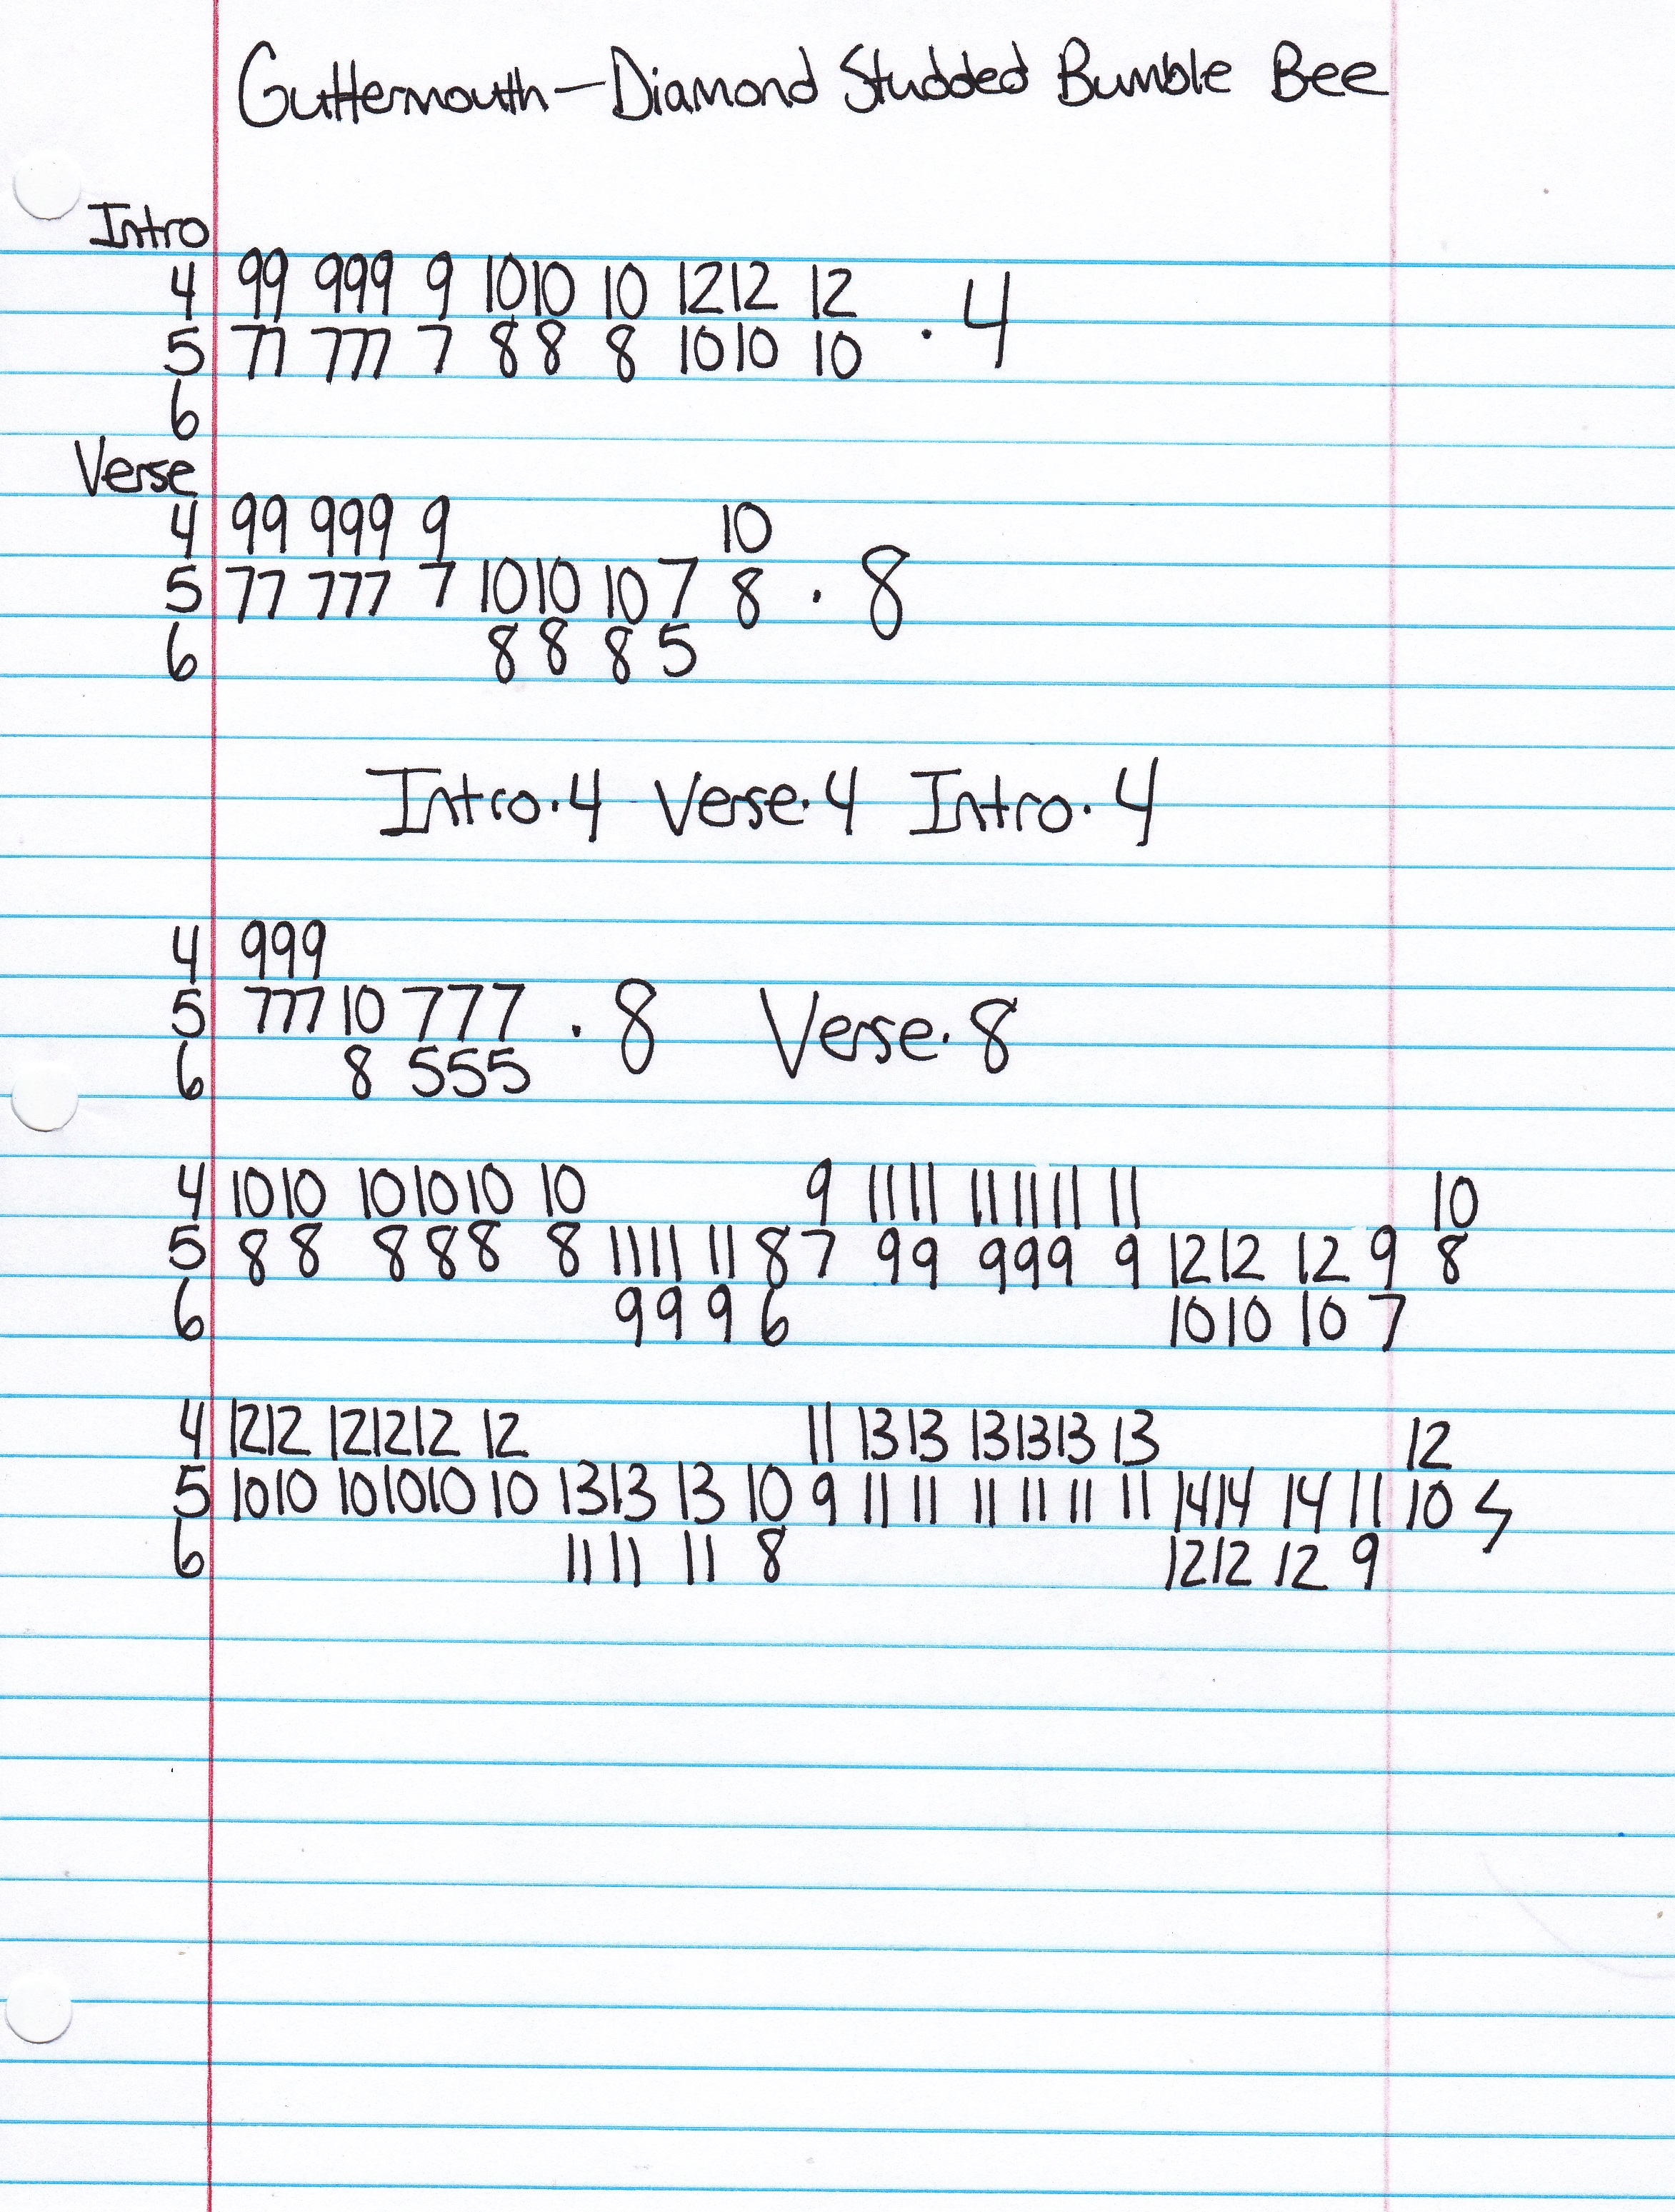 Guttermouth—Diamond Studded Bumble Bee
Intro
4 99 999 9 1010 10 1212 12
5 77 777 7 8 8 8 1010 10 · 4
6
Verse
4 99 999 9 10
5 77 777 7 1010 10 7 8 · 8
6 8 8 8 5
Intro·4 Verse·4 Intro·4
4 999
5 777 10 777 · 8 Verse·8
6 8 555
4 1010 101010 10 9 1111 111111 11 10
5 8 8 8 8 8 8 1111 11 8 7 99 999 9 1212 12 9 8
6 99 9 6 1010 10 7
4 1212 121212 12 11 1313 131313 13 12
5 1010 101010 10 1313 13 10 9 11 11 11 11 11 11 1414 14 11 10
6 1111 11 8 1212 12 9